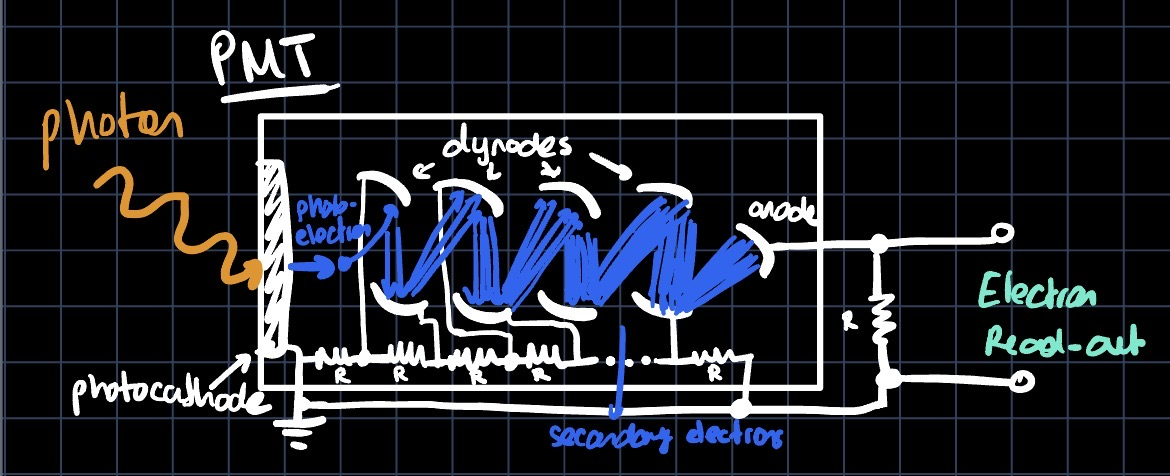 PMT
photon
dynodes
photo-
electron
anode
Electron
Read-out
R
R
R
R
R
R
photocathode
secondary electrons